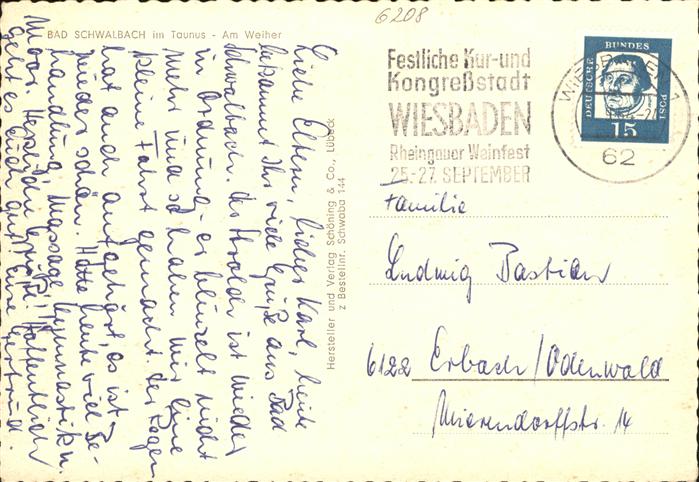 6208
BAD SCHWALBACH im Taunus - Am Weiher
Liebe Eltern, lieber Karl, heute
bekommt Ihr viele Grüße aus Bad
Schwalbach. der ist wieder
in Ordnung - es blinzelt nicht
mehr und so haben wir eine
kleine Fahrt gemacht. der Regen
hat auch aufgehört, es ist
wieder schön. Hatte heute viel Be-
handlung, Massage, Gymnastik u.
Moor. Herzliche Grüße, Hoffentlich
geht es Euch gut. Eure Gertrud.
Hersteller und Verlag Schöning & Co., Lübeck
z Bestellnr. Schwaba 144
Festliche Kur-und
Kongreßstadt
WIESBADEN
Rheingauer Weinfest
25.-27. SEPTEMBER
WIESBADEN 1
62
DEUTSCHE BUNDESPOST
15
Familie
Ludwig Bastian
6122 Erbach/Odenwald
Mierendorffstr. 14